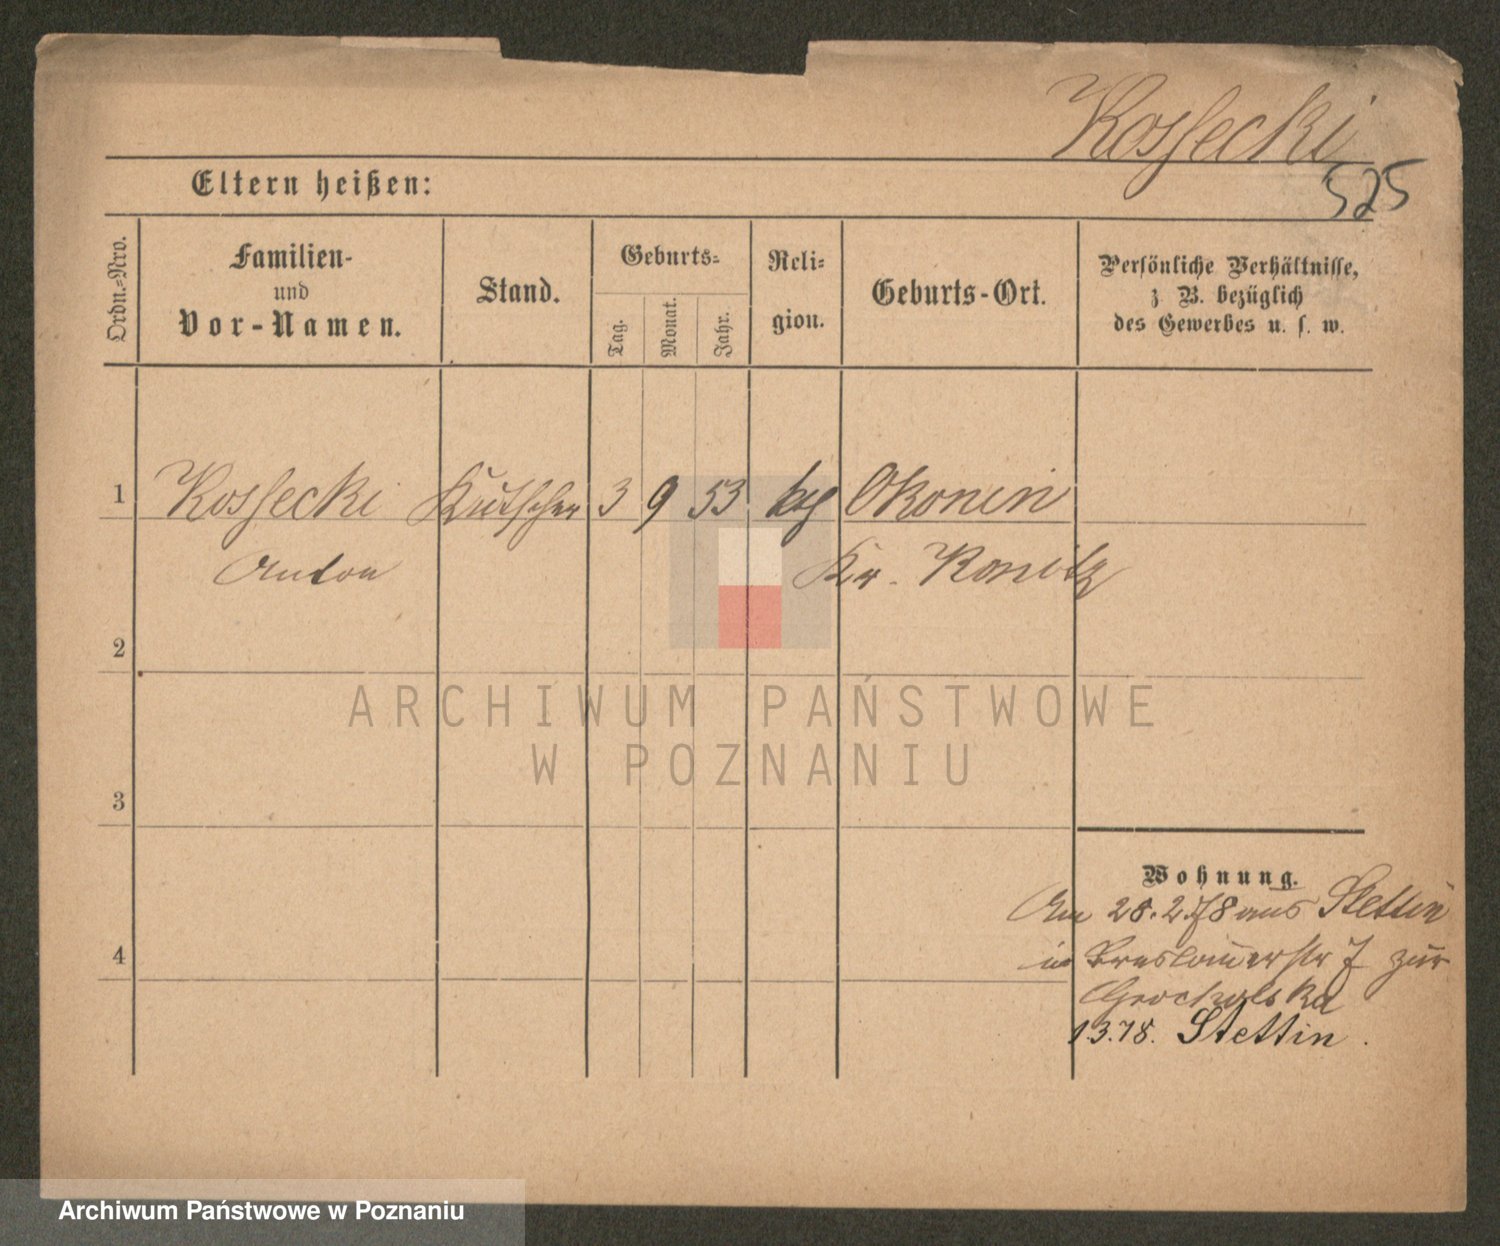 Kossecki
525
Eltern heißen:
Ordn.-Nro.
Familien-
und
Vor-Namen.
Stand.
Geburts-
Tag.
Monat.
Jahr.
Reli-
gion.
Geburts-Ort.
Persönliche Verhältnisse,
z. B. bezüglich
des Gewerbes u. s. w.
1 Kossecki Kutscher 3 9 53 kth Okonin
Anton Kr. Konitz
2
ARCHIWUM PAŃSTWOWE
W POZNANIU
3
Wohnung.
Am 28.2.78 aus Stettin
4
in Breslauerstr 7 zur
Grocholska
1.3.78. Stettin.
Archiwum Państwowe w Poznaniu